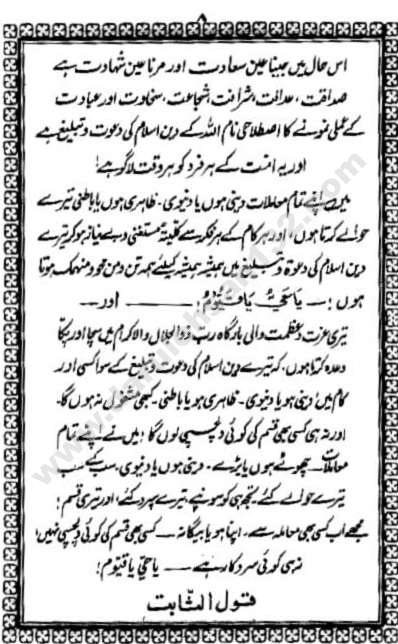 ۸
اس حال میں جینا عین سعادت اور مرنا عین شہادت ہے
صداقت، عدالت، شرافت، شجاعت، سخاوت اور عبادت
کے عملی نمونے کا اصطلاحی نام اللہ کے دین اسلام کی دعوت و تبلیغ ہے
اور یہ امت کے ہر فرد کو ہر وقت لاگو ہے!
میں اپنے تمام معاملات دینی ہوں یا دنیوی۔ ظاہری ہوں یا باطنی تیرے
حوالے کرتا ہوں، اور ہر کام کے ہر فکر سے کلیتہً مستغنی و بے نیاز ہو کر تیرے
دین اسلام کی دعوۃ و تبلیغ میں ہمیشہ ہمیشہ کیلئے ہمہ تن و من محو و منہمک ہوتا
ہوں :— یَا حَیُّ یَا قَیُّوْمُ! ——— اور—
تیری عزت و عظمت والی بارگاہ رب ذوالجلال والاکرام میں سچا اور پکا
وعدہ کرتا ہوں، کہ تیرے دین اسلام کی دعوت و تبلیغ کے سوا کسی اور
کام میں دینی ہو یا دنیوی۔ ظاہری ہو یا باطنی۔ کبھی مشغول نہ ہوں گا۔
اور نہ ہی کسی بھی قسم کی کوئی دلچسپی لوں گا! میں نے اپنے تمام
معاملات چھوٹے ہوں یا بڑے۔ دینی ہوں یا دنیوی، سب کے سب
تیرے حوالے کئے، تجھ ہی کو سونپے، تیرے سپرد کئے، اور تیری قسم!
مجھے اب کسی بھی معاملہ سے، اپنا ہو یا بیگانہ — کسی بھی قسم کی کوئی دلچسپی نہیں،
نہ ہی کوئی سروکار ہے ——— یا حَیُّ یا قَیُّوم!
قول الثّابت